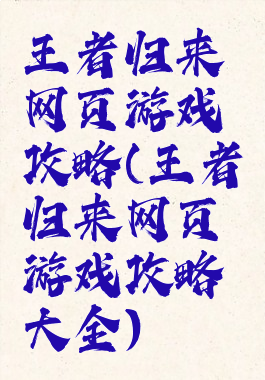 王者归来
网页游戏
攻略(王者
归来网页
游戏攻略
大全)